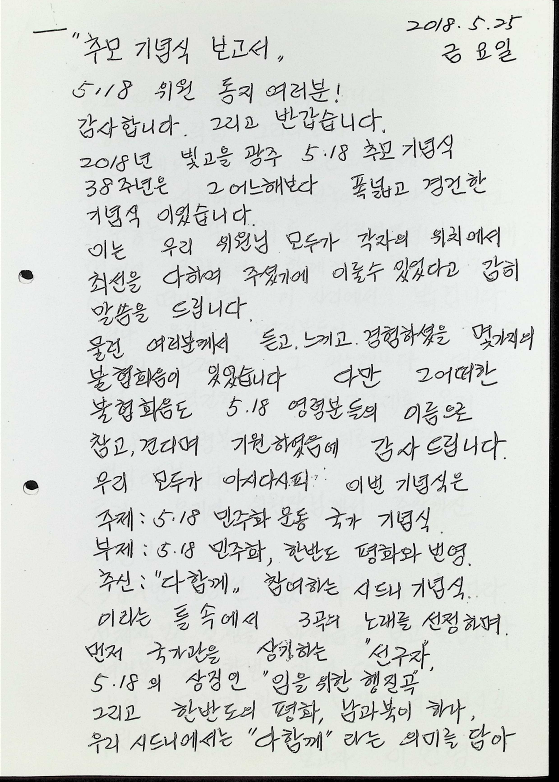 2018. 5. 25
"추모 기념식 보고서"
금 요일
5.18 위원 동지 여러분!
감사합니다. 그리고 반갑습니다.
2018년 빛고을 광주 5.18 추모 기념식
38주년은 그어느해보다 폭넓고 경건한
기념식 이었습니다.
이는 우리 위원님 모두가 각자의 위치에서
최선을 다하여 주셨기에 이룰수 있었다고 감히
말씀을 드립니다.
물런 여러분께서 듣고. 느끼고. 경험하셨을 몇가지의
불협화음이 있었습니다 다만 그어떠한
불협화음도 5.18 영령분들의 이름으로
참고, 견디며 기원하였음에 감사드립니다.
우리 모두가 아시다시피 이번 기념식은
주제: 5.18 민주화 운동 국가 기념식.
부제: 5.18 민주화, 한반도 평화와 번영.
추신: "다함께" 참여하는 시드니 기념식.
이라는 틀 속에서 3곡의 노래를 선정하며.
먼저 국가관을 상기하는 "선구자",
5.18의 상징인 "임을 위한 행진곡"
그리고 한반도의 평화, 남과북이 하나,
우리 시드니에서는 "다함께" 라는 의미를 담아